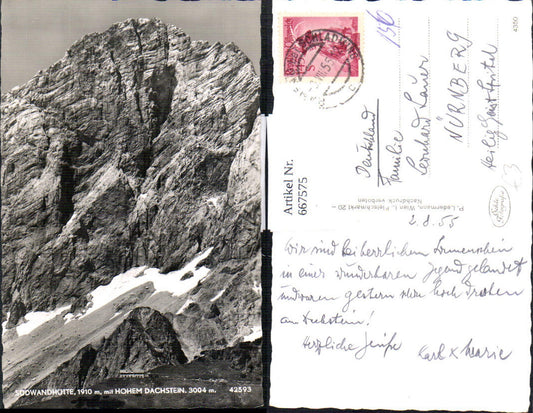 SÜDWANDHÜTTE, 1910 m, mit HOHEM DACHSTEIN, 3004 m.
42593
Artikel Nr.
667575
4360
P. Ledermann, Wien I, Fleischmarkt 20 -
Nachdruck verboten
Deutschland
Familie
Leonhard
NÜRNBERG
Heilig Geist Spital
2.8.55
Wir sind bei herrlichem Sonnenschein
in einer wunderbaren Jugend gelandet
und waren gestern hoch droben
am
Herzliche Grüße
Karl & Marie